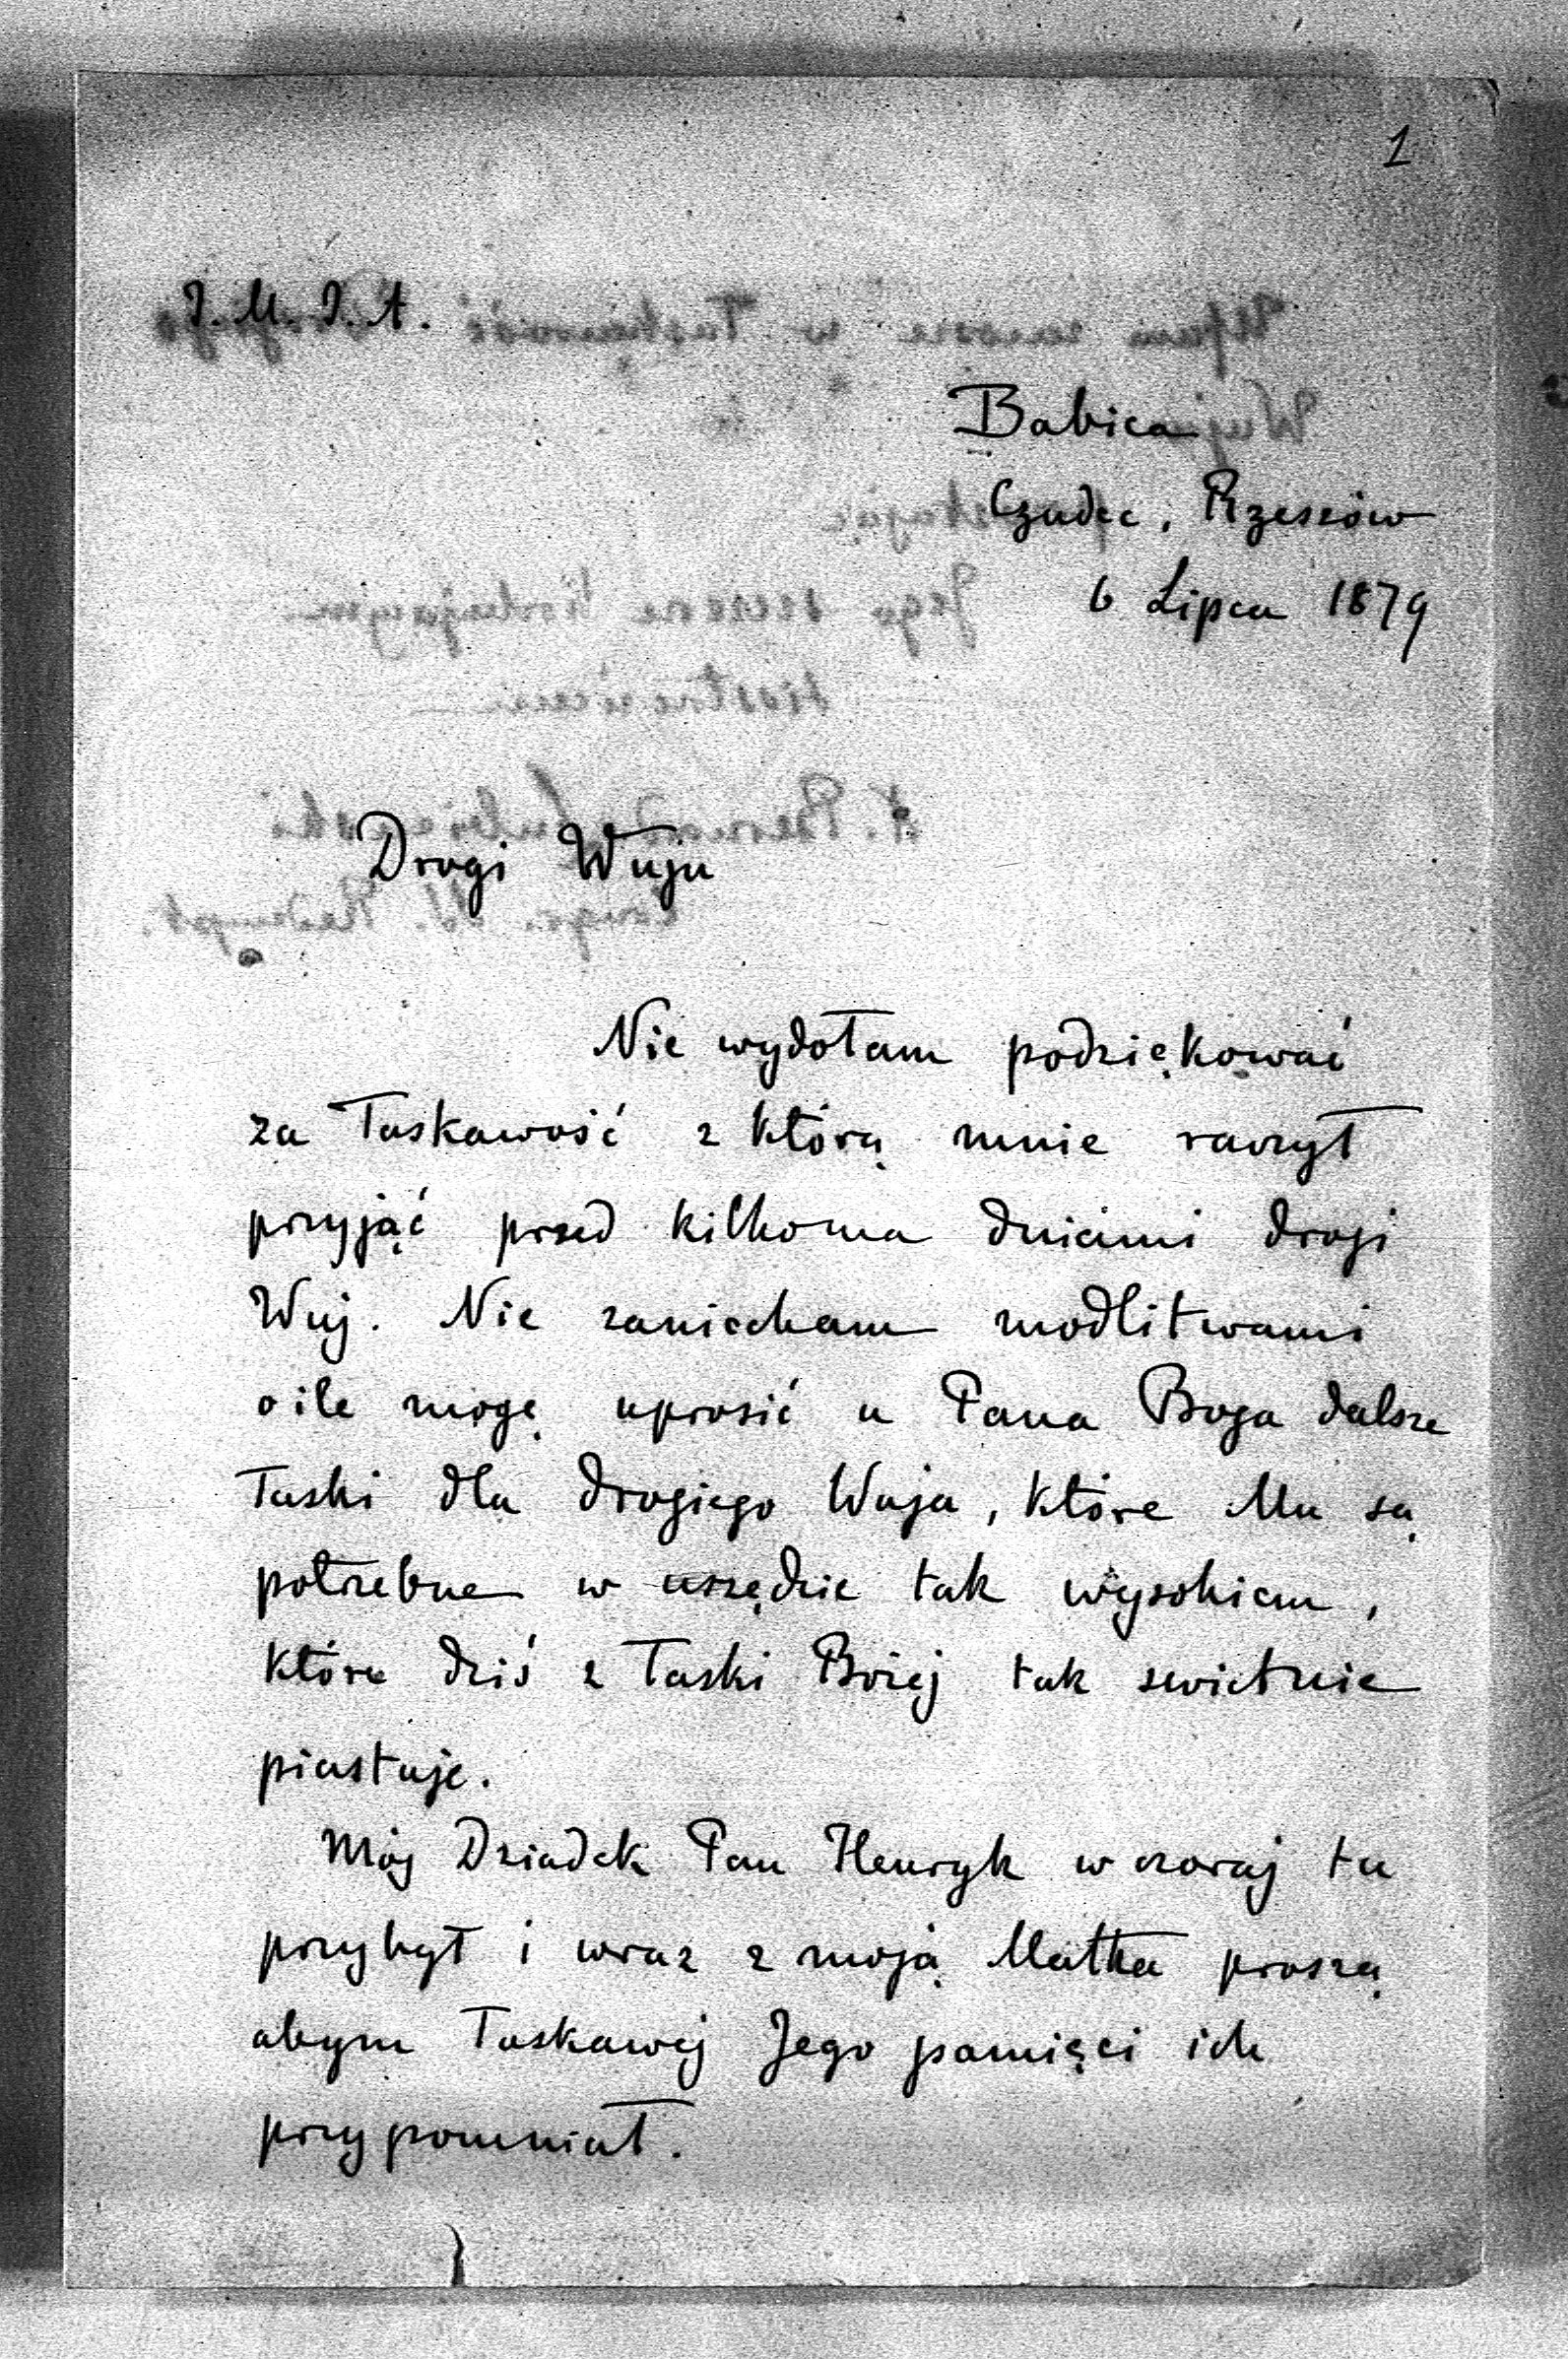 1
J. M. J. A.
Babica
Czudec, Rzeszów
6 Lipca 1879
Drogi Wuju
Nie wydołam podziękować
za łaskawość z którą mnie raczył
przyjąć przed kilkoma dniami drogi
Wuj. Nie zaniecham modlitwami
o ile mogę uprosić u Pana Boga dalsze
łaski dla drogiego Wuja, które Mu są
potrzebne w urzędzie tak wysokiem,
które dziś z łaski Bożej tak swietnie
piastuje.
Mój Dziadek Pan Henryk wczoraj tu
przybył i wraz z moją Matka proszą
abym łaskawej Jego pamięci ich
przypomniał.